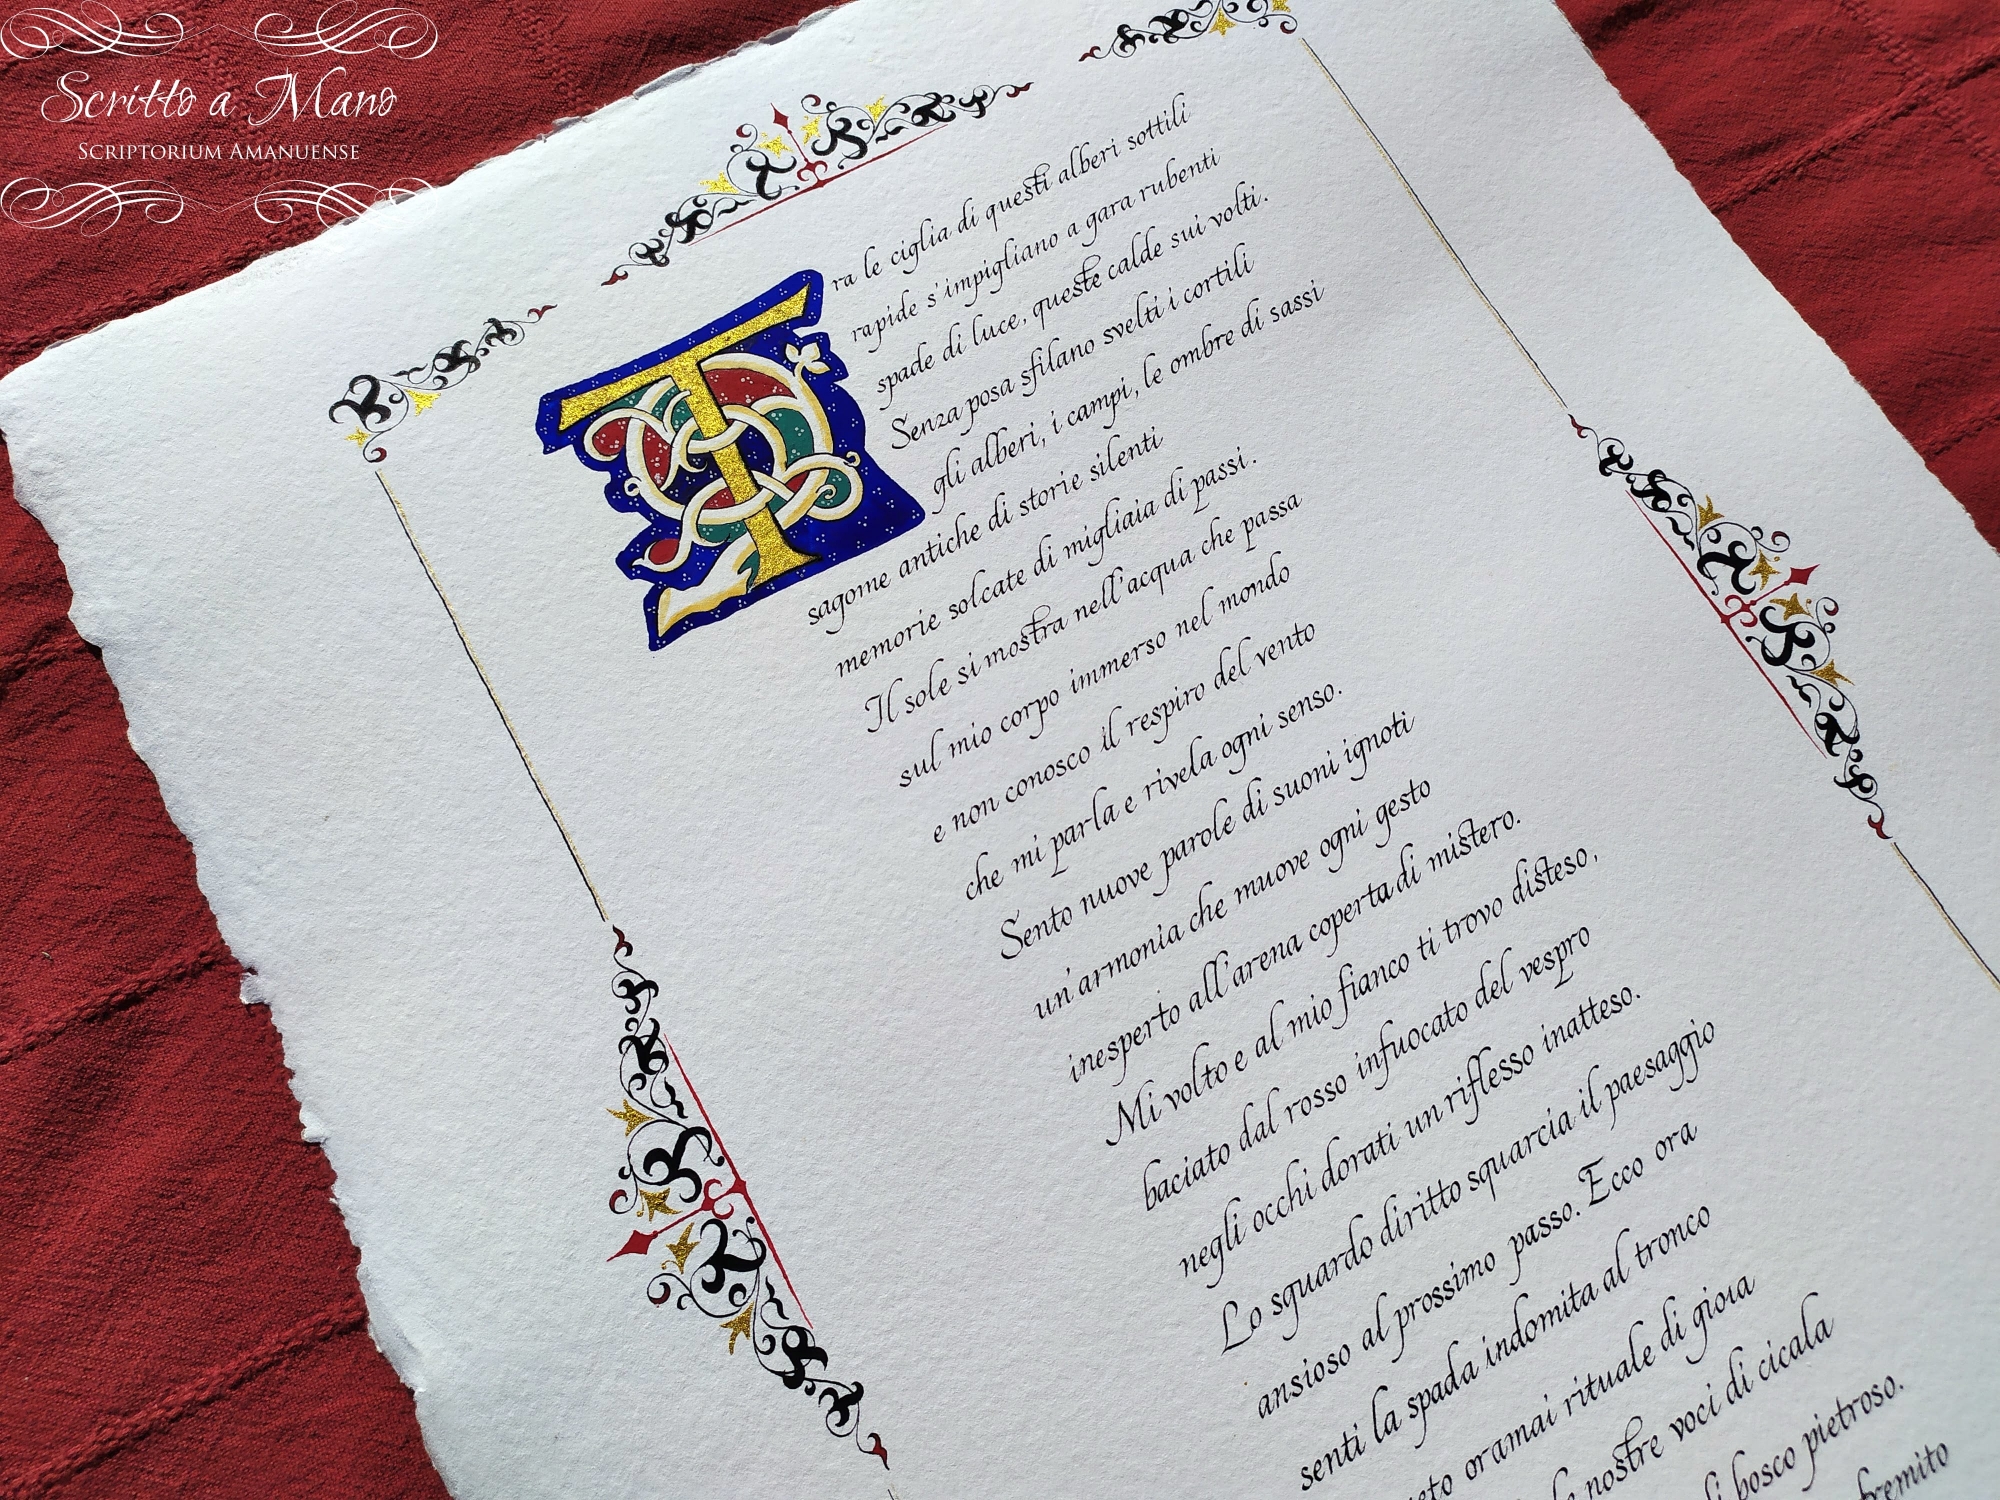 Scritto a Mano
SCRIPTORIUM AMANUENSE
Tra le ciglia di questi alberi sottili
rapide s'impigliano a gara rubenti
spade di luce, queste calde sui volti.
Senza posa sfilano svelti i cortili
gli alberi, i campi, le ombre di sassi
sagome antiche di storie silenti
memorie solcate di migliaia di passi.
Il sole si mostra nell'acqua che passa
sul mio corpo immerso nel mondo
e non conosco il respiro del vento
che mi parla e rivela ogni senso.
Sento nuove parole di suoni ignoti
un'armonia che muove ogni gesto
inesperto all'arena coperta di mistero.
Mi volto e al mio fianco ti trovo disteso,
baciato dal rosso infuocato del vespro
negli occhi dorati un riflesso inatteso.
Lo sguardo diritto squarcia il paesaggio
ansioso al prossimo passo. Ecco ora
senti la spada indomita al tronco
oramai rituale di gioia
nostre voci di cicala
bosco pietroso.